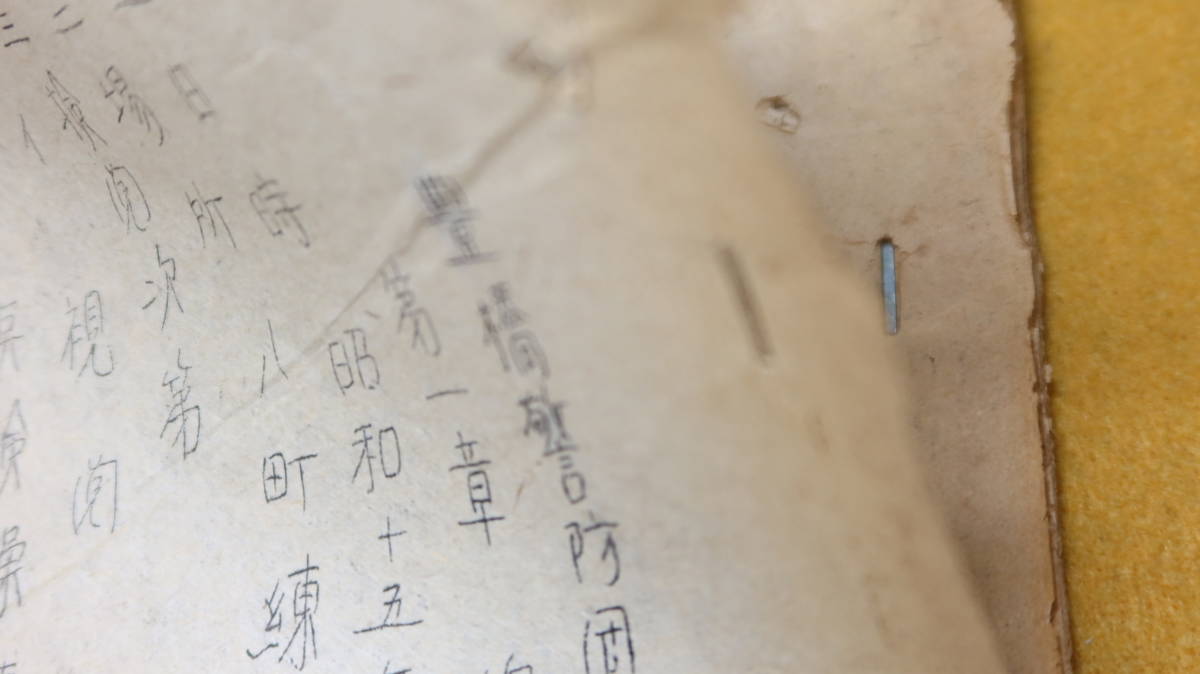 豐橋警防団
第一章
昭和十五年
一 日時 八町練
二 場所
三 検閲次第
イ 視閲